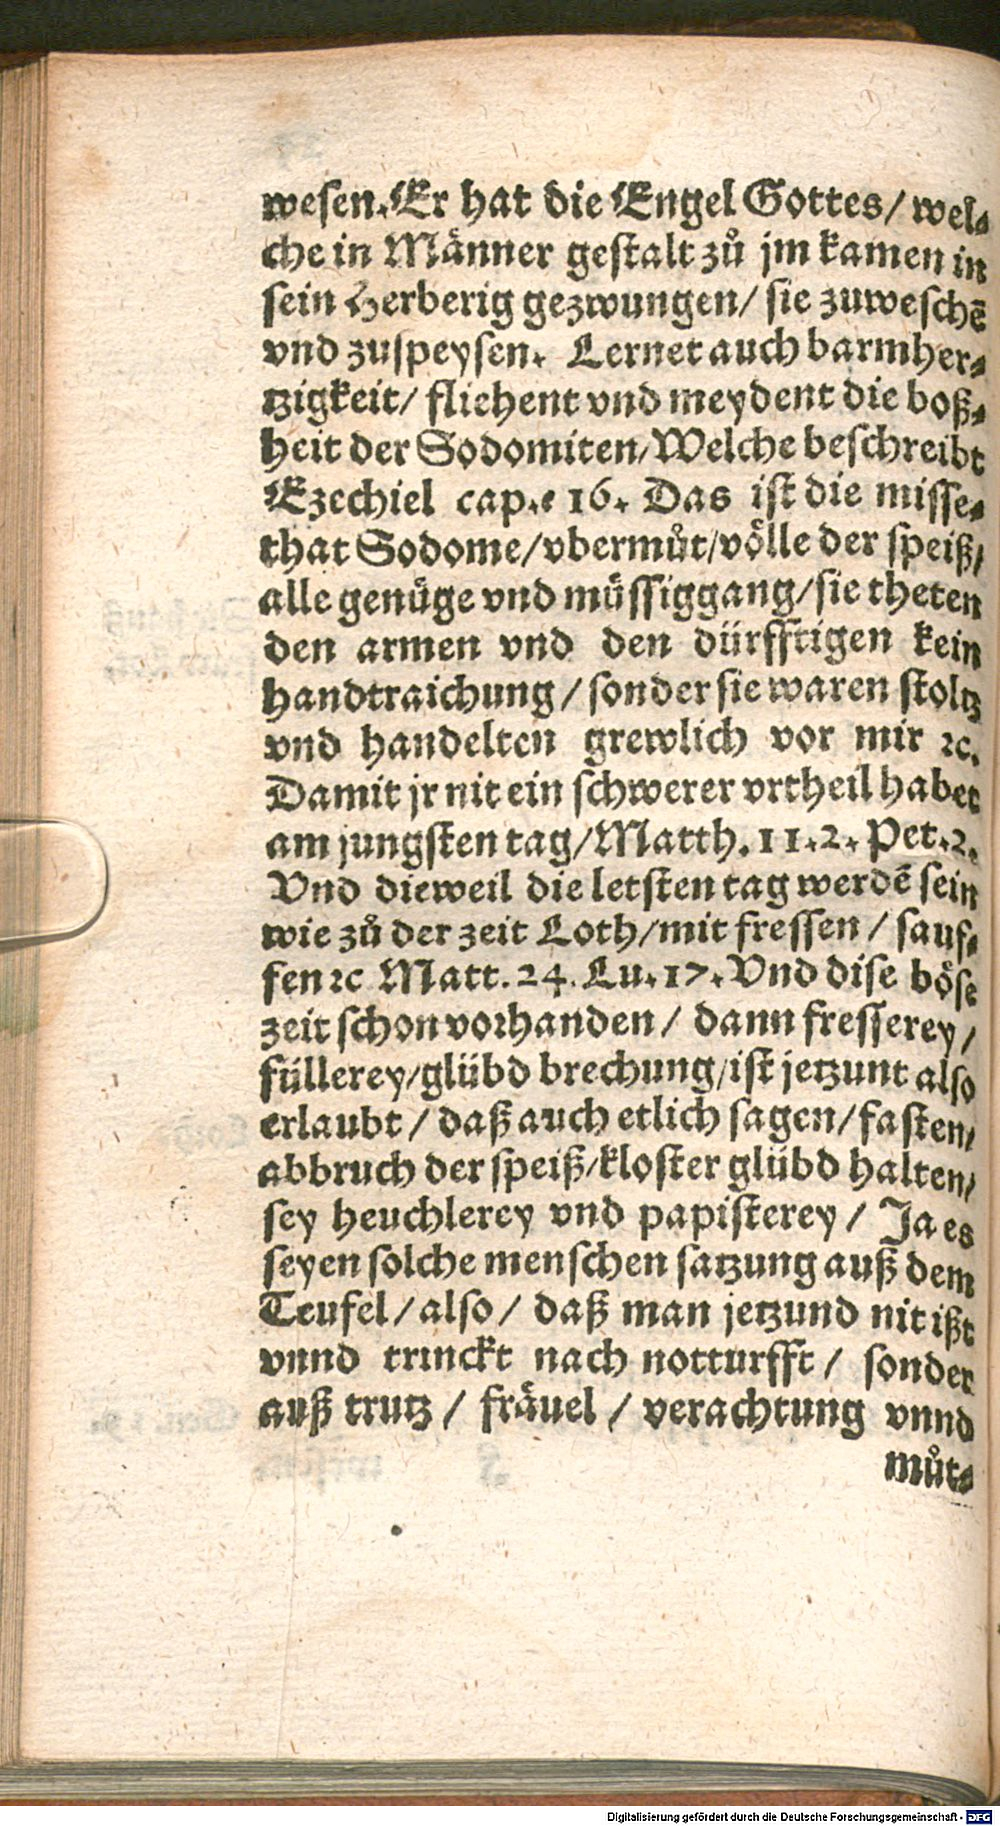 wesen. Er hat die Engel Gottes/ wel-
che in Männer gestalt zů jm kamen in
sein Herberig gezwungen/ sie zuweschē
vnd zuspeysen. Lernet auch barmher-
tzigkeit/ fliehent vnd meydent die boß-
heit der Sodomiten/ Welche beschreibt
Ezechiel cap. 16. Das ist die misse-
that Sodome/ vbermůt/ völle der speiß/
alle genüge vnd müssiggang/ sie theten
den armen vnd den dürfftigen kein
handtraichung/ sonder sie waren stoltz
vnd handelten grewlich vor mir ꝛc.
Damit jr nit ein schwerer vrtheil habet
am jungsten tag/ Matth. 11. 2. Pet. 2.
Vnd dieweil die letsten tag werdē sein
wie zů der zeit Loth/ mit fressen/ sauf-
fen ꝛc Matt. 24. Lu. 17. Vnd dise böse
zeit schon vorhanden/ dann fresserey/
füllerey/ glübd brechung/ ist jetzunt also
erlaubt/ daß auch etlich sagen/ fasten/
abbruch der speiß/ kloster glübd halten/
sey heuchlerey vnd papisterey/ Ja es
seyen solche menschen satzung auß dem
Teufel/ also/ daß man jetzund nit ißt
vnnd trinckt nach notturfft/ sonder
auß trutz/ fräuel/ verachtung vnnd
můt-
Digitalisierung gefördert durch die Deutsche Forschungsgemeinschaft - DFG